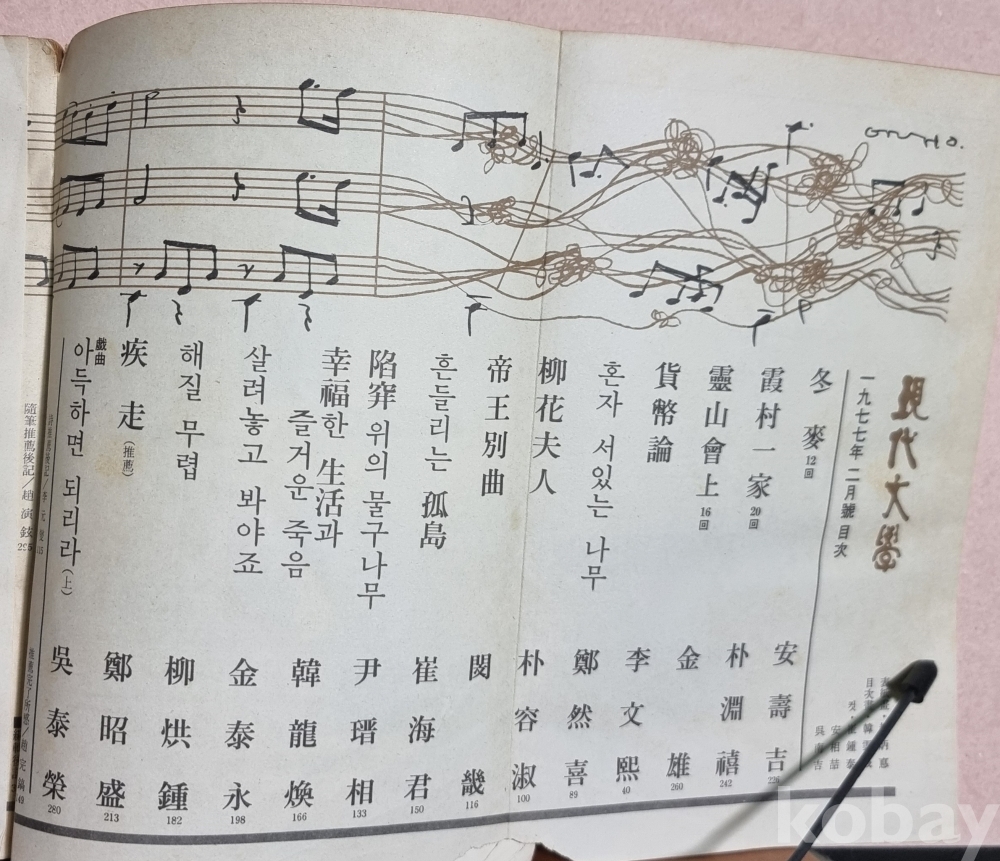 現代文學
一九七七年二月號目次
冬麥 12回 安壽吉 226
霞村一家 20回 朴淵禧 242
靈山會上 16回 金雄 260
貨幣論 李文熙 40
혼자 서있는 나무 鄭然喜 89
柳花夫人 朴容淑 100
帝王別曲 閔畿 116
흔들리는 孤島 崔海君 150
陷穽 위의 물구나무 尹瑨相 133
幸福한 生活과
즐거운 죽음 韓龍煥 166
살려놓고 봐야죠 金泰永 198
해질 무렵 柳烘鍾 182
疾走 (推薦) 鄭昭盛 213
戱曲 아득하면 되리라 (上) 吳泰榮 280
隨筆推薦後記／趙演鉉 295
kobay